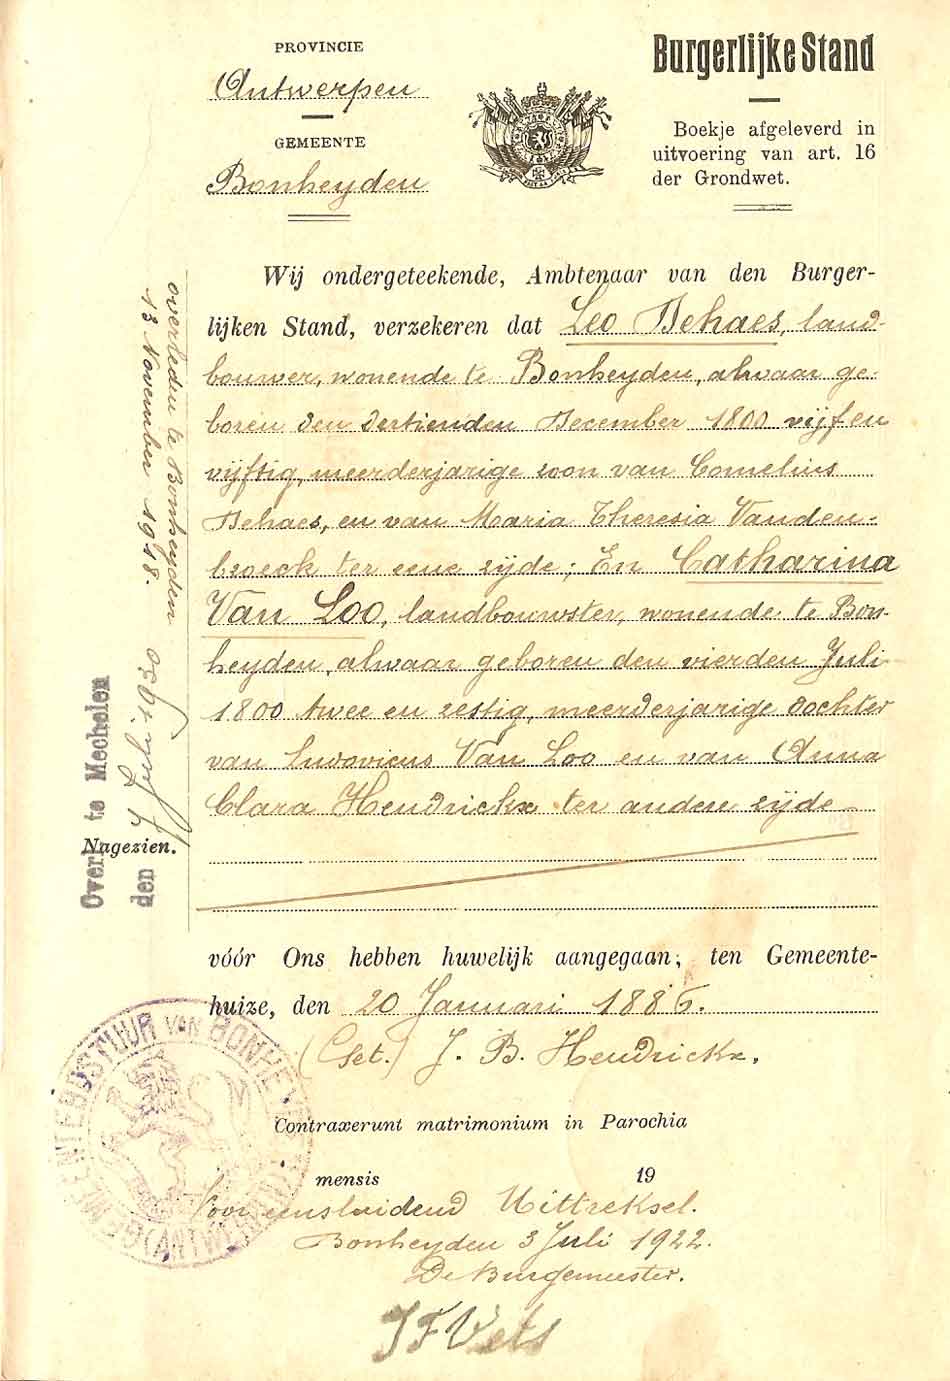 PROVINCIE
Antwerpen
GEMEENTE
Bonheyden
Burgerlijke Stand
Boekje afgeleverd in
uitvoering van art. 16
der Grondwet.
Wij ondergeteekende, Ambtenaar van den Burger-
lijken Stand, verzekeren dat Leo Dehaes, land-
bouwer, wonende te Bonheyden, alwaar ge-
boren den dertienden December 1800 vijf en
vijftig, meerderjarige zoon van Cornelius
Dehaes, en van Maria Theresia Vanden-
broeck ter eene zijde; En Catharina
Van Loo, landbouwster, wonende te Bon-
heyden, alwaar geboren den vierden Juli
1800 twee en zestig, meerderjarige dochter
van Ludovicus Van Loo en van Anna
Clara Hendrickx ter andere zijde
overleden te Bonheyden
13 November 1918.
Overl. te Mechelen
den 7 Juli 1930
Nagezien.
vóór Ons hebben huwelijk aangegaan, ten Gemeente-
huize, den 20 Januari 1886.
(Get.) J. B. Hendrickx.
Contraxerunt matrimonium in Parochia
mensis 19
Voor eensluidend Uittreksel.
Bonheyden 3 Juli 1922.
De Burgemeester.
JF Vets
GEMEENTEBESTUUR VAN BONHEYDEN (ANTWERPEN)